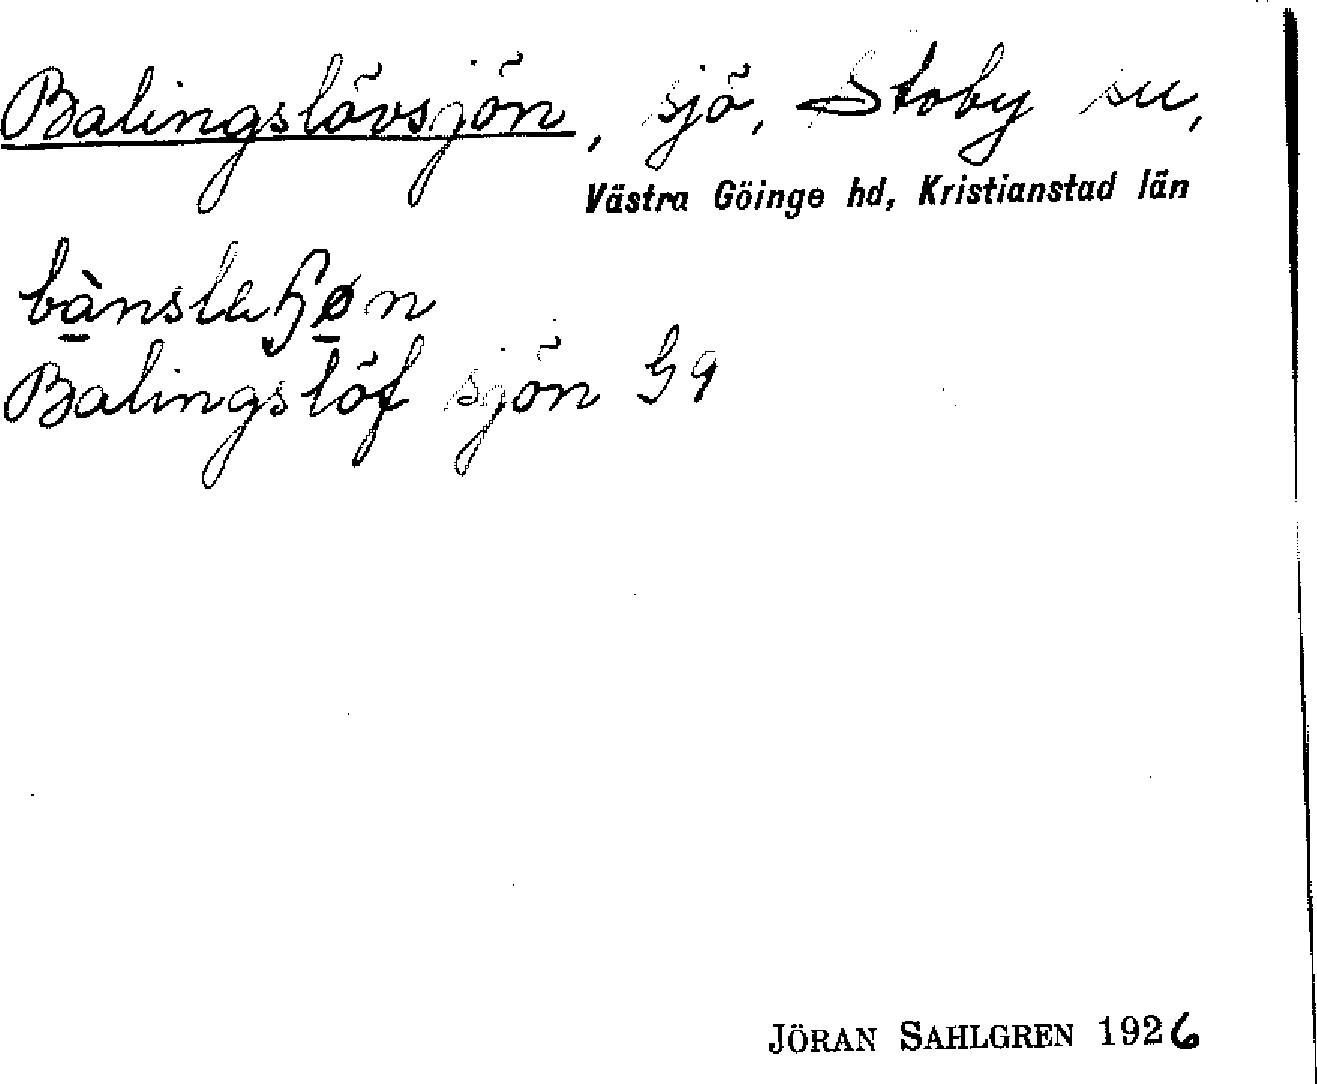 Balingslövsjön, sjö, Stoby sn,
Västra Göinge hd, Kristianstad län
Balingslöf sjön G9
JÖRAN SAHLGREN 1926